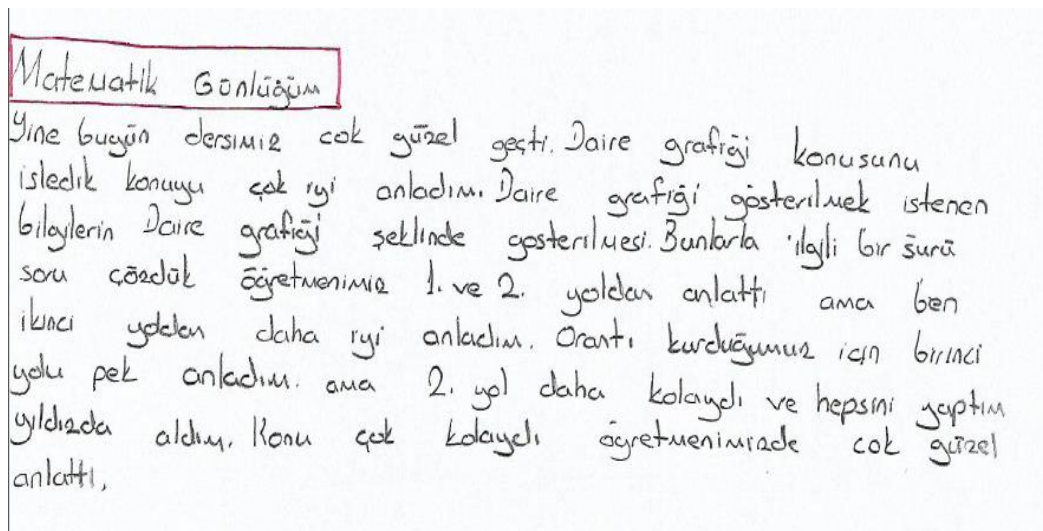 Matematik Günlüğüm
Yine bugün dersimiz cok güzel geçti. Daire grafiği konusunu
isledik konuyu çok iyi anladım. Daire grafiği gösterilmek istenen
bilgilerin Daire grafiği şeklinde gosterilmesi. Bunlarla ilgili bir sürü
soru çözdük öğretmenimiz 1. ve 2. yoldan anlattı ama ben
ikinci yoldan daha iyi anladım. Orantı kurduğumuz için birinci
yolu pek anladım. ama 2. yol daha kolaydı ve hepsini yaptım
yıldızda aldım. Konu çok kolaydı öğretmenimizde cok güzel
anlattı,